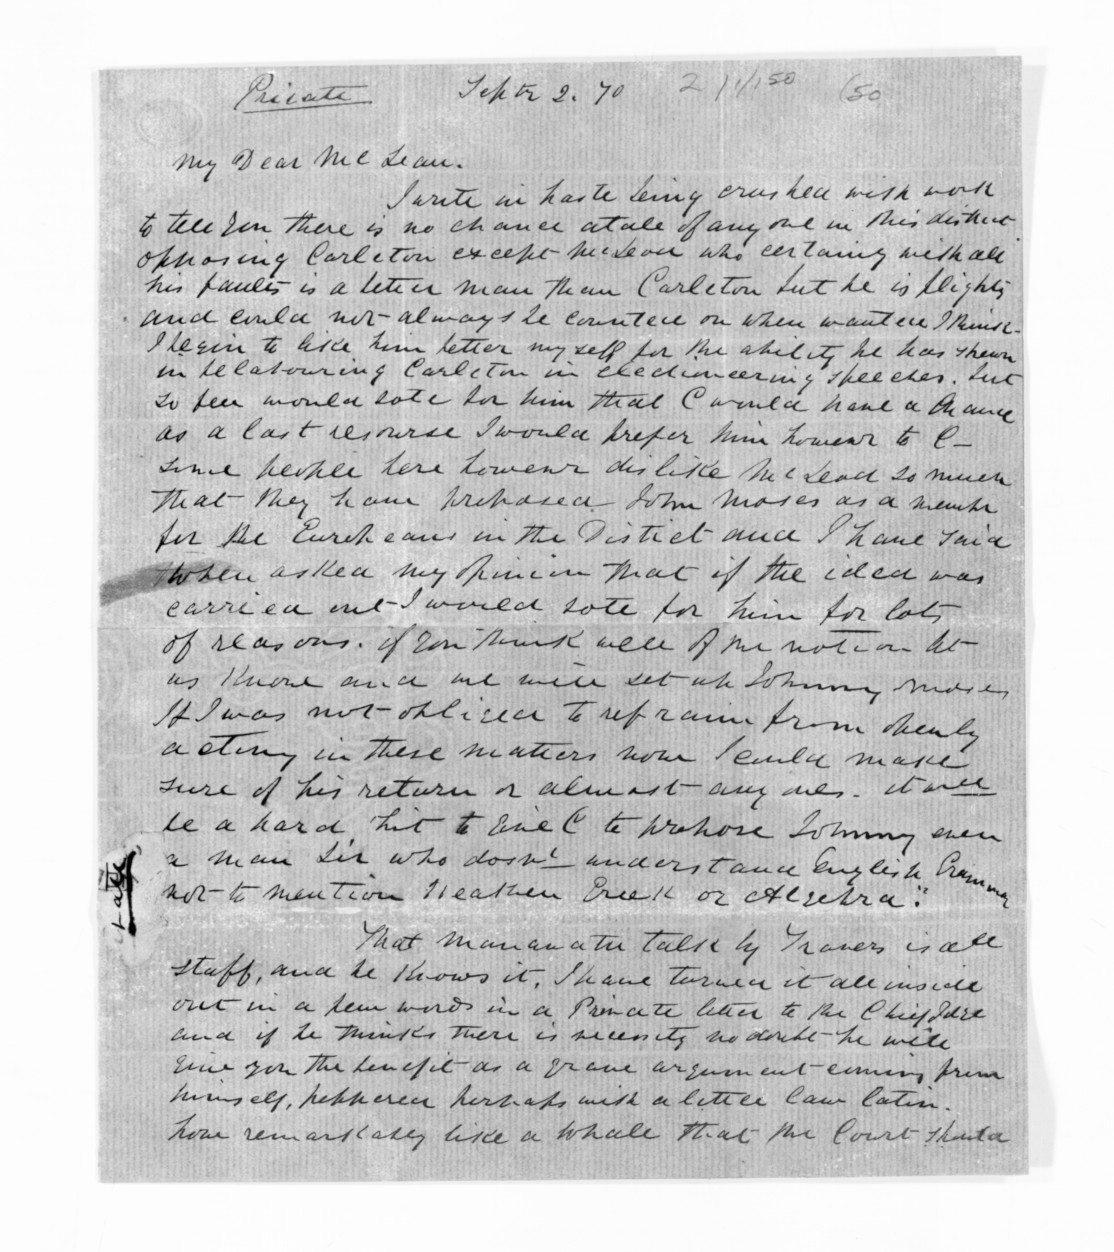 Private Septr 2. 70 2/1/150 (50
My Dear McLean.
I write in haste being crushed with work
to tell you there is no chance atale of any one in this district
opposing Carleton except McLeod who certainly with all
his faults is a better man than Carleton but he is flighty
and could not always be counted on when wanted I think
I begin to like him better myself for the ability he has shewn
in belabouring Carleton in electioneering speeches. but
so few would vote for him that C would have a chance
as a last resourse I would prefer him however to C-
some people here however dislike McLeod so much
that they have proposed John Moses as a membr
for the Europeans in the Distict and I have said
when asked my opinion that if the idea was
carried out I would vote for him for lots
of reasons. if you think well of the notion let
us know and we will set up Johnny Moses
If I was not obliged to refrain from openly
acting in these matters now I could make
sure of his return or almost any ones. it will
be a hard hit to give C to propose Johnny even
a man Sir who dosnt understand English Grammar
not to mention Heathen Greek or Algebra."
That Manawatu talk by Travers is all
staff, and he knows it, I have turned it all inside
out in a few words in a Private letter to the Chief Jdge
and if he thinks there is necessity no doubt he will
give you the benefit as a grave argument coming from
himself, peppered perhaps with a little law latin.
how remarkably like a whale that the Court should